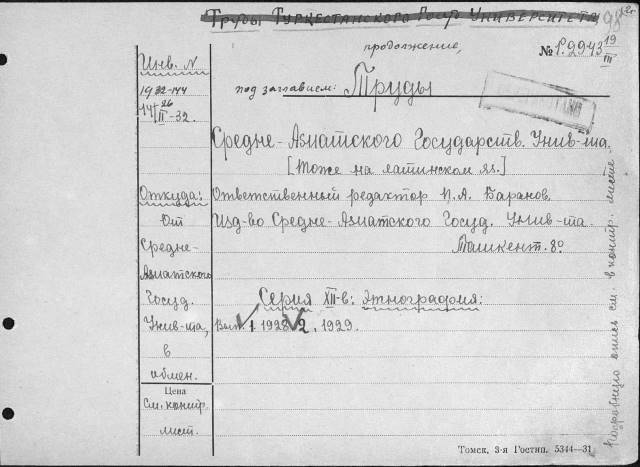 Труды Туркестанского Госуд Университета
продолжение,
№ Р.2943 19/III
Инв. N
1932-144
14 26/II-32.
под заглавием: Труды
Средне-Азиатского Государств. Унив-та.
[Тоже на латинском яз.]
Откуда:
От
Средне-
Азиатского
Госуд.
Унив-та,
в
обмен.
Ответственный редактор П.А. Баранов.
Изд-во Средне-Азиатского Госуд. Унив-та.
Ташкент. 8°
Серия XII-в: Этнография:
Вып. 1 1928 2, 1929.
Цена
См. контр.
лист.
Подробную опись см. в контр. листе
Томск, 3-я Гостип. 5344—31